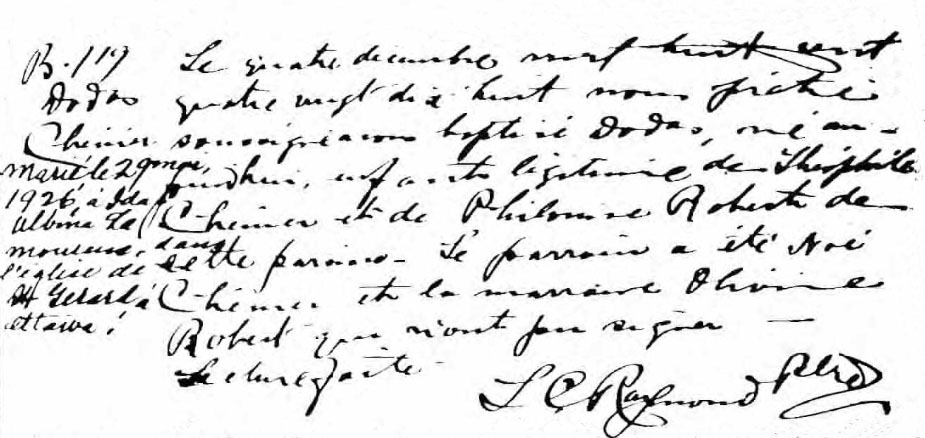 B. 119
Dodas
Chénier
marié le 29 mai,
1926, à Ida
Albina La
moureux, dans
l'église de
St Gerard à
Ottawa.
Le quatre decembre mil huit cent
quatre vingt dix huit nous prêtre
soussigné avons baptisé Dodas, né au-
jourdhui, enfant légitime de Théophile
Chénier et de Philomène Robert de
cette paroisse. Le parrain a été Noé
Chénier et la marraine Olivine
Robert qui n'ont pu signer —
Lecture faite
L C Raymond Ptre